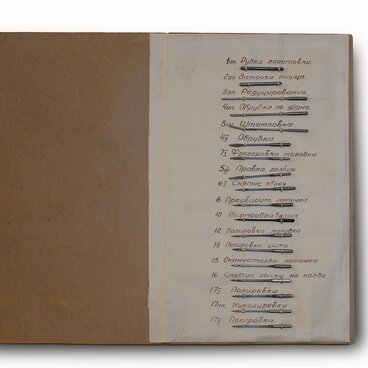 1оп. Рубка заготовки.
2оп. Заточка торца.
3оп. Редуцирование
4оп. Обрубка по длине.
Штамповка
Обрубка
7I Фрезеровка желобка
5III Правка лезвия
6I Снятие облоя
6 Предварит. заточка
10 Термообработка
12 Полировка желобка
13 Полировка ушка
15 Окончательн. заточка
16 Снятие лыску на колбе
17I Полировка
Никелировка
17II Полировка